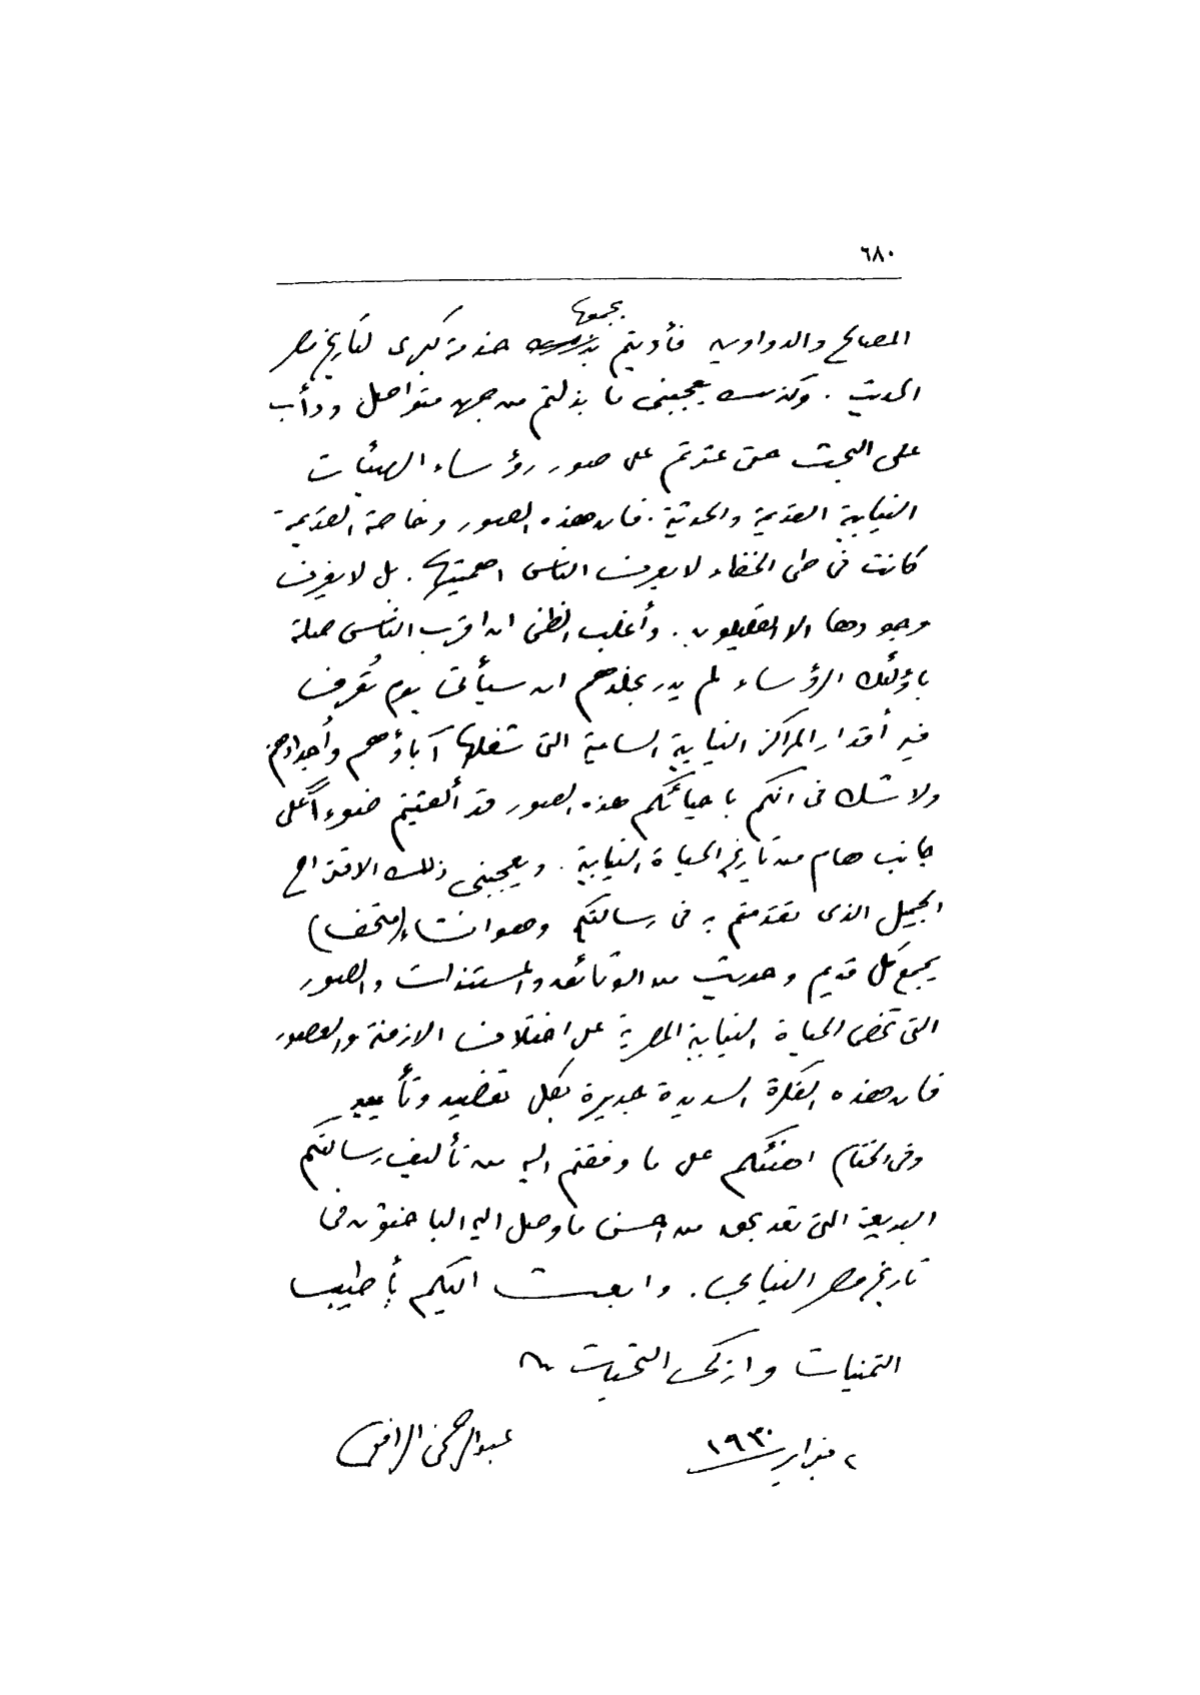 ٦٨٠
المصالح والدواوين فأديتم بجمعها خدمة كبرى لتاريخ مصر
الحديث . وكذلك يعجبني ما بذلتم من جهد متواصل ودأب
على البحث حتى عثرتم على صور رؤساء الهيئات
النيابية القديمة والحديثة . فان هذه الصور وخاصة القديمة
كانت في طى الخفاء لا يعرف الناس اهميتها . بل لا يعرف
وجودها الا القليلون . وأغلب الظن ان اقرب الناس صلة
باولئك الرؤساء لم يدر بخلدهم ان سيأتى يوم تُعرف
فيه أقدار المراكز النيابية السامية التى شغلها آباؤهم وأجدادهم
ولا شك فى انكم باحيائكم هذه الصور قد ألقيتم ضوءاً على
جانب هام من تاريخ الحياة النيابية . ويعجبنى ذلك الاقتراح
الجميل الذى تقدمتم به فى رسالتكم وهو انشاء (متحف)
يجمع كل قديم وحديث من الوثائق والمستندات والصور
التى تخص الحياة النيابية المصرية على اختلاف الازمنة والعصور
فان هذه الفكرة السديدة جديرة بكل تعضيد وتأييد
وفى الختام اهنئكم على ما وفقتم اليه من تأليف رسالتكم
البديعة التى تعد بحق من احسن ما وصل اليه الباحثون فى
تاريخ مصر النيابي . وابعث اليكم بأطيب
التمنيات وازكى التحيات
٢ فبراير ١٩٣٠
عبد الرحمن الرافعى